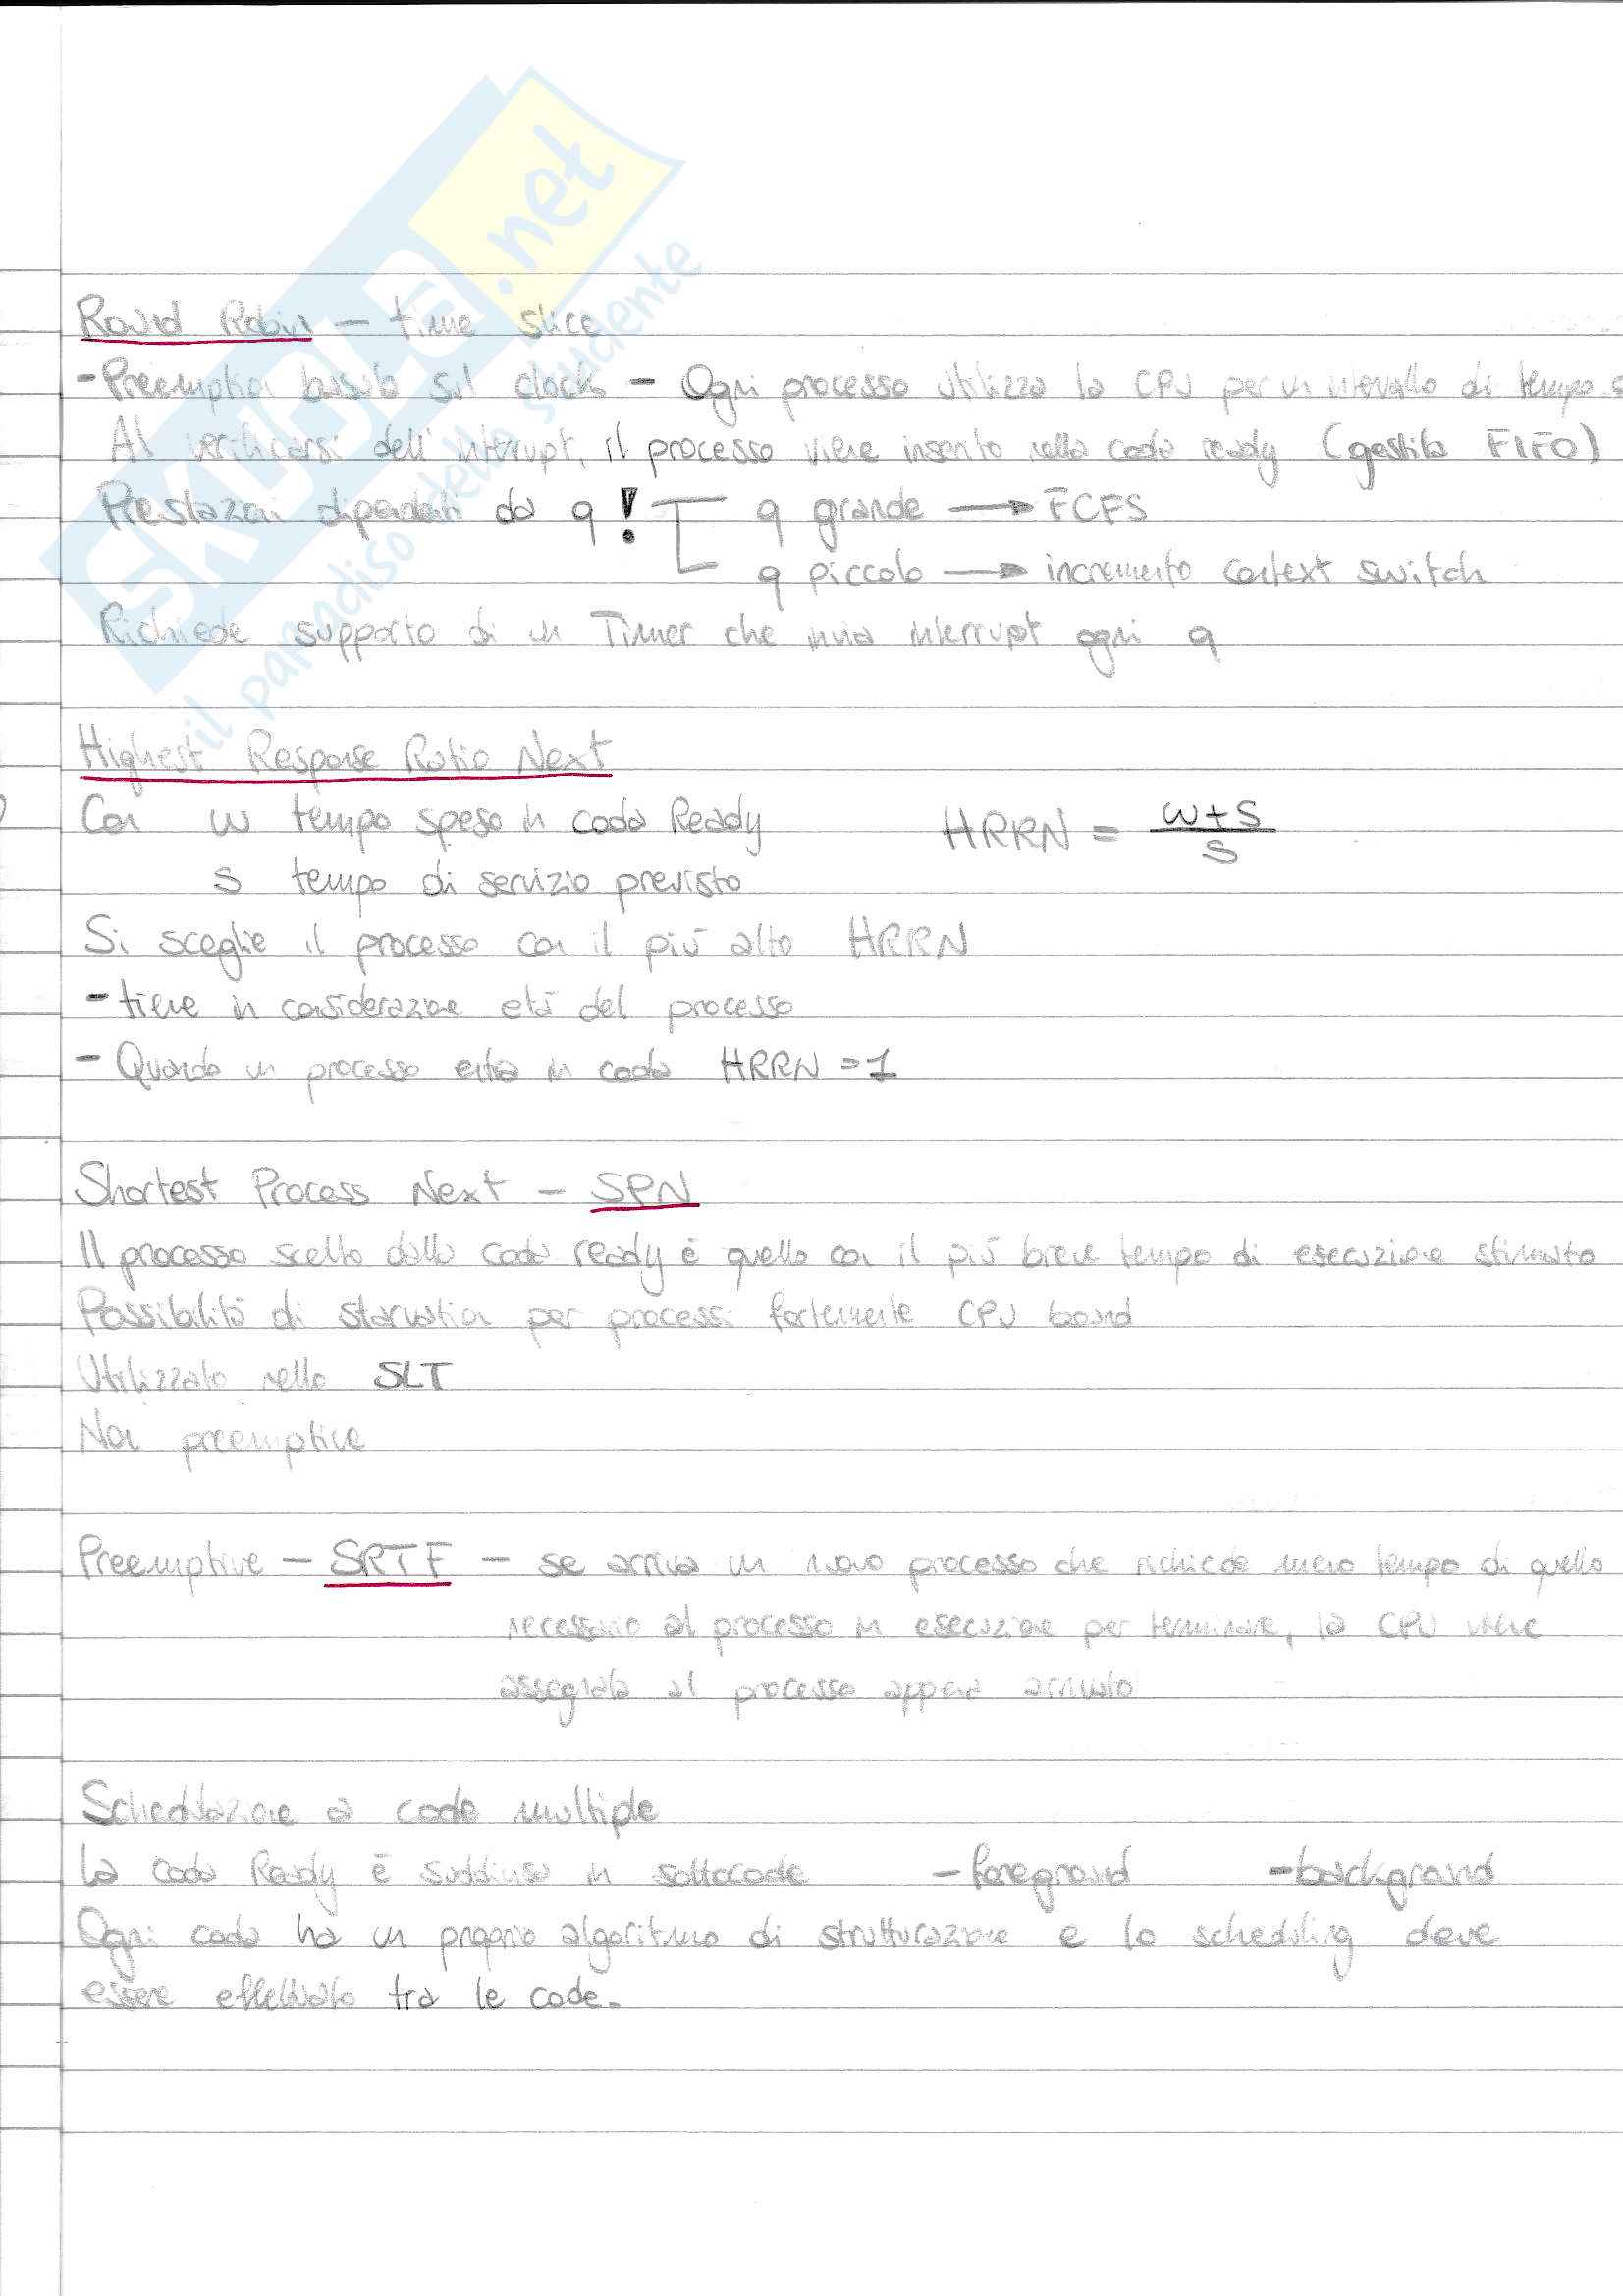 SKUOLA.net
il paradiso dello studente
Round Robin - time slice
- Preemption basata sul clock - Ogni processo utilizza la CPU per un intervallo di tempo
Al verificarsi dell'interrupt, il processo viene inserito nella coda ready (gestita FIFO)
Prestazioni dipendenti da q! q grande → FCFS
q piccolo → incremento context switch
Richiede supporto di un Timer che invia interrupt ogni q
Highest Response Ratio Next
Con w tempo speso in coda Ready HRRN = w+s / s
s tempo di servizio previsto
Si sceglie il processo con il più alto HRRN
- tiene in considerazione età del processo
- Quando un processo entra in coda HRRN = 1
Shortest Process Next - SPN
Il processo scelto dalla coda ready è quello con il più breve tempo di esecuzione stimato
Possibilità di starvation per processi fortemente CPU bound
Utilizzato nello SLT
Non preemptive
Preemptive - SRTF - se arriva un nuovo processo che richiede meno tempo di quello
necessario al processo in esecuzione per terminare, la CPU viene
assegnata al processo appena arrivato
Schedulazione a code multiple
La coda Ready è suddivisa in sottocode - foreground - background
Ogni coda ha un proprio algoritmo di strutturazione e lo scheduling deve
essere effettuato tra le code.